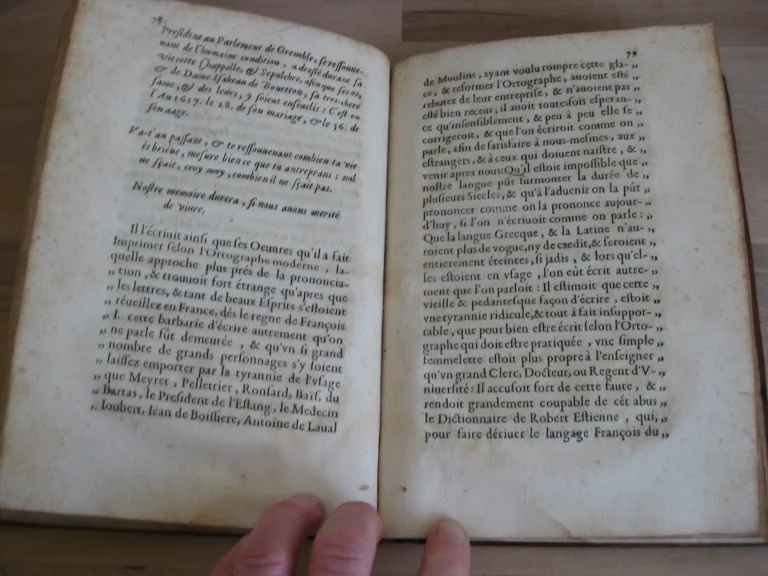 78
President au Parlement de Grenoble, se ressouue-
nant de l'humaine condition, a dressé durant sa
vie cette Chappelle, & Sepulchre, afin que ses os,
& de Dame Isabeau de Bouetton, sa tres-chere
fame, & des leurs, y soient enseuelis : C'est en
l'An 1617. le 28. de son mariage, & le 56. de
son aage.
Va-t'an passant, & te ressouuenant combien ta vie
ét brieue, mesure bien ce que tu antreprans : nul
ne sçait, croy moy, combien il ne sçait pas.
Nostre memoire durera, si nous auons merité
de viure.
Il l'écriuit ainsi que ses Oeuures qu'il a fait
Imprimer selon l'Ortographe moderne, la-
quelle approche plus prés de la prononcia-
„ tion, & trouuoit fort étrange qu'apres que
„ les lettres, & tant de beaux Esprits s'estoient
„ réueillez en France, dés le regne de François
„ I. cette barbarie d'écrire autrement qu'on
„ ne parle fût demeurée, & qu'vn si grand
„ nombre de grands personnages s'y soient
„ laissez emporter par la tyrannie de l'vsage
„ que Meyret, Pelletrier, Ronsard, Baïf, du
„ Bartas, le President de l'Estang, le Medecin
„ Ioubert, Iean de Boissiere, Antoine de Laual
79
de Moulins, ayant voulu rompre cette gla- „
ce, & reformer l'Ortographe, auoient esté „
rebutez de leur entreprise, & n'auoient pas „
esté bien receus, il auoit toutesfois esperan- „
ce qu'insensiblement, & peu à peu elle se „
corrigeroit, & que l'on écritoit comme on „
parle, afin de satisfaire à nous-mesmes, aux „
estrangers, & à ceux qui doiuent naistre, & „
venir apres nous: Qu'il estoit impossible que „
nostre langue pût surmonter la durée de „
plusieurs Siecles, & qu'à l'aduenir on la pût „
prononcer comme on la prononce aujour- „
d'huy, si l'on n'écriuoit comme on parle : „
Que la langue Grecque, & la Latine n'au- „
roient plus de vogue, ny de credit, & seroient „
entierement éteintes, si jadis, & lors qu'el- „
les estoient en vsage, l'on eût écrit autre- „
ment que l'on parloit : Il estimoit que cette „
vieille & pedantesque façon d'écrire, estoit „
vne tyrannie ridicule, & tout à fait insuppor- „
table, que pour bien estre écrit selon l'Orto- „
graphe qui doit estre pratiquée, vne simple „
femmelette estoit plus propre à l'enseigner „
qu'vn grand Clerc, Docteur, ou Regent d'V- „
niuersité : Il accusoit fort de cette faute, & „
rendoit grandement coupable de cét abus „
le Dictionnaire de Robert Estienne, qui, „
pour faire dériuer le langage François du „